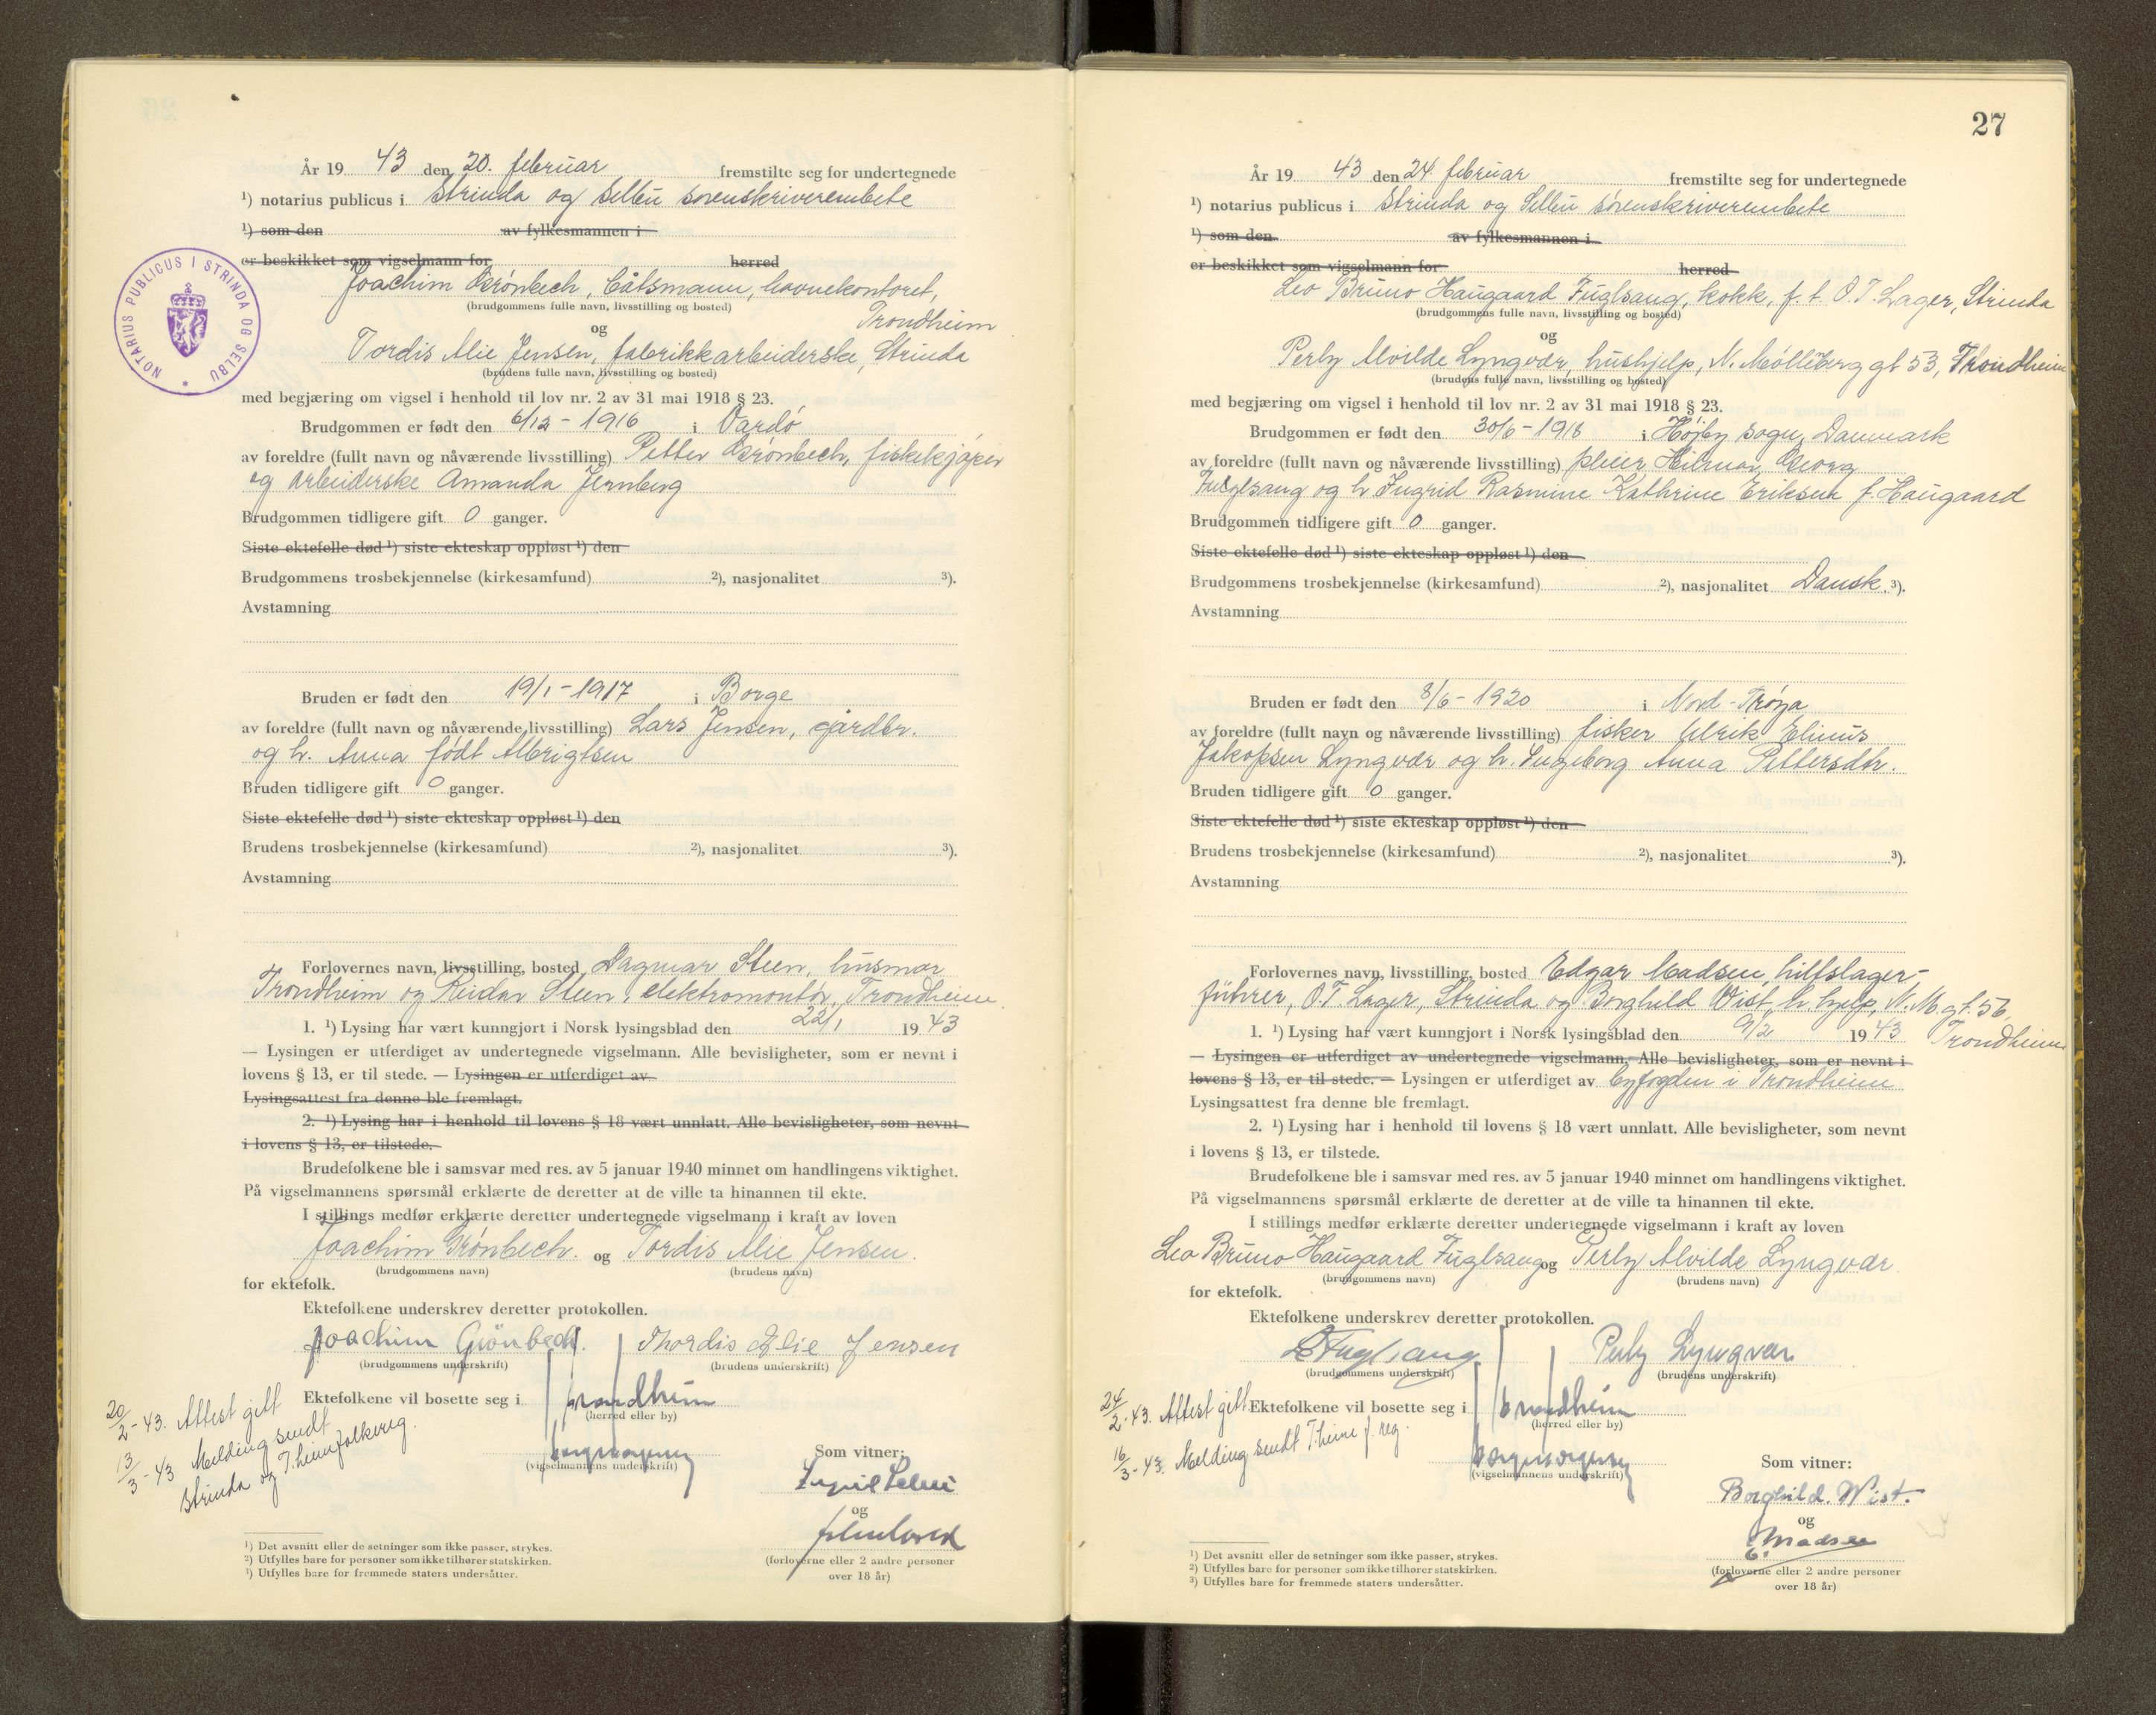 År 19 43 den 20. februar fremstilte seg for undertegnede
¹) notarius publicus i Strinda og Selbu sorenskriverembete
¹) som den av fylkesmannen i
er beskikket som vigselmann for herred
Joachim Grönbech, båtsmann, havnekontoret,
(brudgommens fulle navn, livsstilling og bosted)
Trondheim
og
Tordis Alie Jensen, fabrikkarbeiderske, Strinda
(brudens fulle navn, livsstilling og bosted)
NOTARIUS PUBLICUS I STRINDA OG SELBU
med begjæring om vigsel i henhold til lov nr. 2 av 31 mai 1918 § 23.
Brudgommen er født den 6/12 - 1916 i Vardö
av foreldre (fullt navn og nåværende livsstilling) Petter Grönbech, fiskekjöper
og arbeiderske Amanda Jernberg
Brudgommen tidligere gift 0 ganger.
Siste ektefelle død ¹) siste ekteskap oppløst ¹) den
Brudgommens trosbekjennelse (kirkesamfund) ²), nasjonalitet ³).
Avstamning
Bruden er født den 19/1 - 1917 i Borge
av foreldre (fullt navn og nåværende livsstilling) Lars Jensen, gårdbr.
og h. Anna født Albrigtsen
Bruden tidligere gift 0 ganger.
Siste ektefelle død ¹) siste ekteskap oppløst ¹) den
Brudens trosbekjennelse (kirkesamfund) ²), nasjonalitet ³).
Avstamning
Forlovernes navn, livsstilling, bosted Dagmar Steen, husmor
Trondheim og Reidar Steen, elektromontör, Trondheim.
1. ¹) Lysing har vært kunngjort i Norsk lysingsblad den 22/1 19 43
— Lysingen er utferdiget av undertegnede vigselmann. Alle bevisligheter, som er nevnt i
lovens § 13, er til stede. — Lysingen er utferdiget av
Lysingsattest fra denne ble fremlagt.
2. ¹) Lysing har i henhold til lovens § 18 vært unnlatt. Alle bevisligheter, som nevnt
i lovens § 13, er tilstede.
Brudefolkene ble i samsvar med res. av 5 januar 1940 minnet om handlingens viktighet.
På vigselmannens spørsmål erklærte de deretter at de ville ta hinannen til ekte.
I stillings medfør erklærte deretter undertegnede vigselmann i kraft av loven
Joachim Grönbech. og Tordis Alie Jensen.
(brudgommens navn) (brudens navn)
for ektefolk.
Ektefolkene underskrev deretter protokollen.
Joachim Grönbech. Thordis Elie Jensen
(brudgommens underskrift) (brudens underskrift)
Ektefolkene vil bosette seg i Trondheim
(herred eller by)
20/2-43. Attest gitt
13/3-43 Melding sendt
Strinda og T.heim folkereg.
(vigselmannens underskrift)
Som vitner:
og
(forloverne eller 2 andre personer
over 18 år)
¹) Det avsnitt eller de setninger som ikke passer, strykes.
²) Utfylles bare for personer som ikke tilhører statskirken.
³) Utfylles bare for fremmede staters undersåtter.
27
År 19 43 den 24. februar fremstilte seg for undertegnede
¹) notarius publicus i Strinda og Selbu sorenskriverembete
¹) som den av fylkesmannen i
er beskikket som vigselmann for herred
Leo Bruno Haugaard Fuglsang, kokk, f. t. O.T. Lager, Strinda
(brudgommens fulle navn, livsstilling og bosted)
og
Perly Alvilde Lyngvær, hushjelp, N. Möllebergt 53, Trondheim
(brudens fulle navn, livsstilling og bosted)
med begjæring om vigsel i henhold til lov nr. 2 av 31 mai 1918 § 23.
Brudgommen er født den 30/6 - 1918 i Höjby sogn, Danmark
av foreldre (fullt navn og nåværende livsstilling) pleier Hilmar Georg
Fuglsang og h Ingrid Rasmine Kathrine Eriksen f. Haugaard
Brudgommen tidligere gift 0 ganger.
Siste ektefelle død ¹) siste ekteskap oppløst ¹) den
Brudgommens trosbekjennelse (kirkesamfund) ²), nasjonalitet Dansk. ³).
Avstamning
Bruden er født den 8/6 - 1920 i Nord-Fröya
av foreldre (fullt navn og nåværende livsstilling) fisker Ulrik Elinus
Jakopsen Lyngvær og h. Ingeborg Anna Pettersdtr.
Bruden tidligere gift 0 ganger.
Siste ektefelle død ¹) siste ekteskap oppløst ¹) den
Brudens trosbekjennelse (kirkesamfund) ²), nasjonalitet ³).
Avstamning
Forlovernes navn, livsstilling, bosted Edgar Madsen, hilfslager-
führer, O.T. Lager, Strinda og Borghild Wist, h. hjelp, N. M. gt. 56,
1. ¹) Lysing har vært kunngjort i Norsk lysingsblad den 9/2 19 43 Trondheim
— Lysingen er utferdiget av undertegnede vigselmann. Alle bevisligheter, som er nevnt i
lovens § 13, er til stede. — Lysingen er utferdiget av byfogden i Trondheim
Lysingsattest fra denne ble fremlagt.
2. ¹) Lysing har i henhold til lovens § 18 vært unnlatt. Alle bevisligheter, som nevnt
i lovens § 13, er tilstede.
Brudefolkene ble i samsvar med res. av 5 januar 1940 minnet om handlingens viktighet.
På vigselmannens spørsmål erklærte de deretter at de ville ta hinannen til ekte.
I stillings medfør erklærte deretter undertegnede vigselmann i kraft av loven
Leo Bruno Haugaard Fuglsang og Perly Alvilde Lyngvær
(brudgommens navn) (brudens navn)
for ektefolk.
Ektefolkene underskrev deretter protokollen.
L Fuglsang Perly Lyngvær
(brudgommens underskrift) (brudens underskrift)
24/2-43. Attest gitt Ektefolkene vil bosette seg i Trondheim
(herred eller by)
16/3-43. Melding sendt T.heim f. reg.
(vigselmannens underskrift)
Som vitner:
Borghild. Wist.
og
E. Madsen
(forloverne eller 2 andre personer
over 18 år)
¹) Det avsnitt eller de setninger som ikke passer, strykes.
²) Utfylles bare for personer som ikke tilhører statskirken.
³) Utfylles bare for fremmede staters undersåtter.